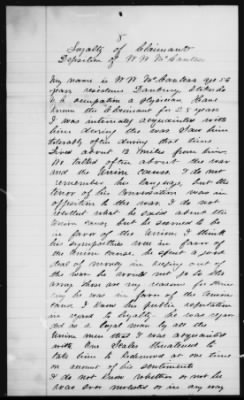 8
Loyalty of Claimants
Deposition of W. W. McCanless
My name is W. W. McCanless age 56
years residence Danbury Stokes Co
N.C. occupation a physician Have
known the Claimant for 28 years
I was intimately acquainted with
him during the war. Saw him
tolerably often during that time
Lived about 2 miles from him.
We talked often about the war
and the Union cause. I do not
remember his language, but the
tenor of his conversation was in
opposition to the war. I do not
recollect what he said about the
Union cause but he seemed to be
in favor of the Union. I think
his sympathies were in favor of
the Union cause. he spent a good
deal of money in keeping out of
the war he would not go to the
army these are my reasons for
he was in favor of the Union
cause. I know his public reputation
in regard to loyalty. he was regar
ded as a loyal man by all the
Union men that I was acquainted
with. Con States threatened to
take him to Richmond at one time
on account of his sentiments
I do not know whether or not he
was ever molested or in any way